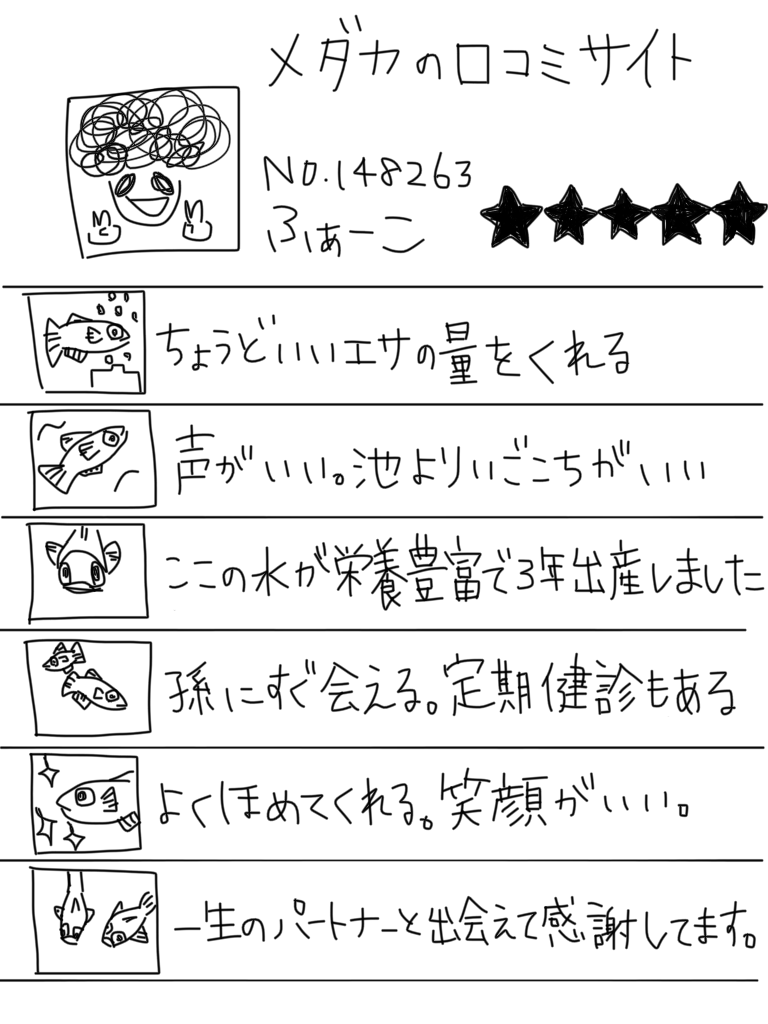 メダカの口コミサイト
NO.148263
ふぁーこ
ちょうどいいエサの量をくれる
声がいい。池よりいごこちがいい
ここの水が栄養豊富で3年出産しました
孫にすぐ会える。定期健診もある
よくほめてくれる。笑顔がいい。
一生のパートナーと出会えて感謝してます。